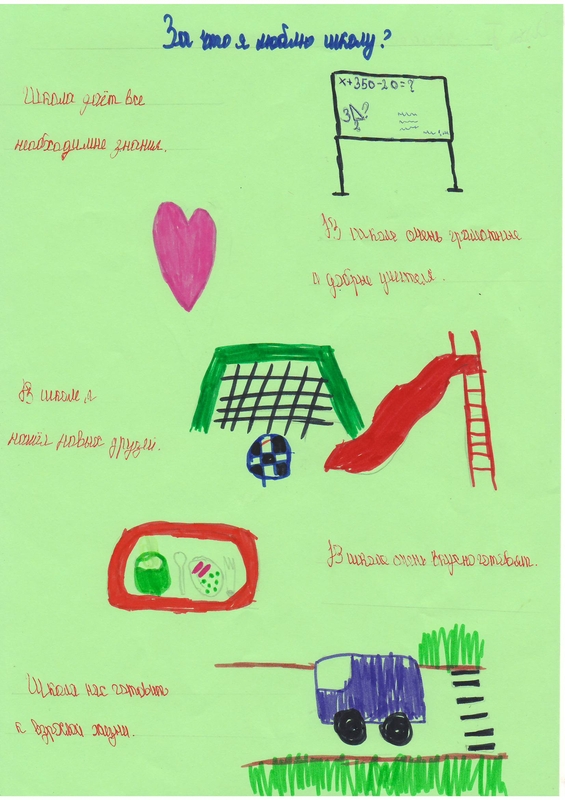 За что я люблю школу?
Школа даёт все
необходимые знания.
x+350-20=?
3
?
2
В школе очень грамотные
и добрые учителя.
В школе я
нашёл новых друзей.
В школе очень вкусно готовят.
Школа нас готовит
к взрослой жизни.